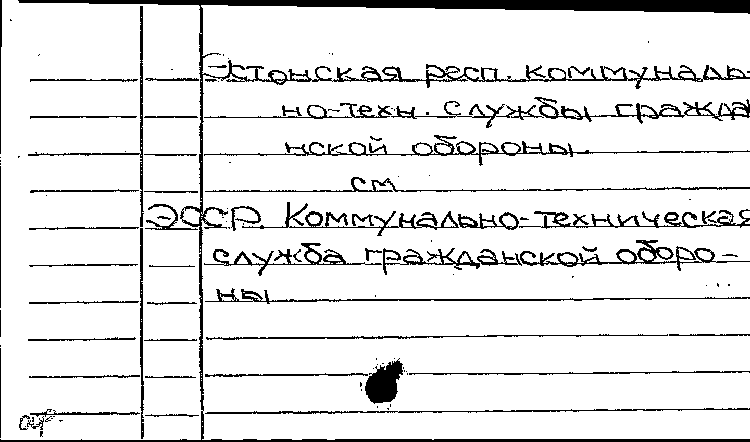 Эстонская респ. коммуналь-
но-техн. службы гражда
нской обороны.
см
ЭССР. Коммунально-техническая
служба гражданской оборо-
ны